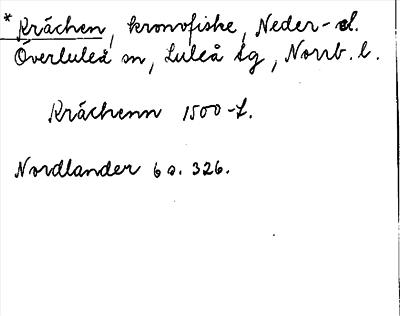 * Kråchen, kronofiske, Neder- el.
Överluleå sn, Luleå tg, Norrb. l.
Kråchenn 1500-t.
Nordlander 6 s. 326.